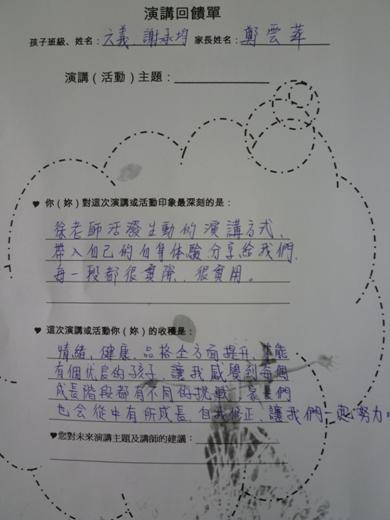 演講回饋單
孩子班級、姓名：六義、謝承均 家長姓名：鄭雲華
演講（活動）主題：
♥ 你（妳）對這次演講或活動印象最深刻的是：
徐老師活潑生動的演講方式，
帶入自己的自身体驗分享給我們，
每一段都很實際、很實用。
♥ 這次演講或活動你（妳）的收穫是：
情緒、健康、品格全方面提升，才能
有個优質的孩子，讓我感覺到每個
成長階段都有不同的挑戰，家長們
也会從中有所成長，自我修正，讓我們一起努力。
♥您對未來演講主題及講師的建議：